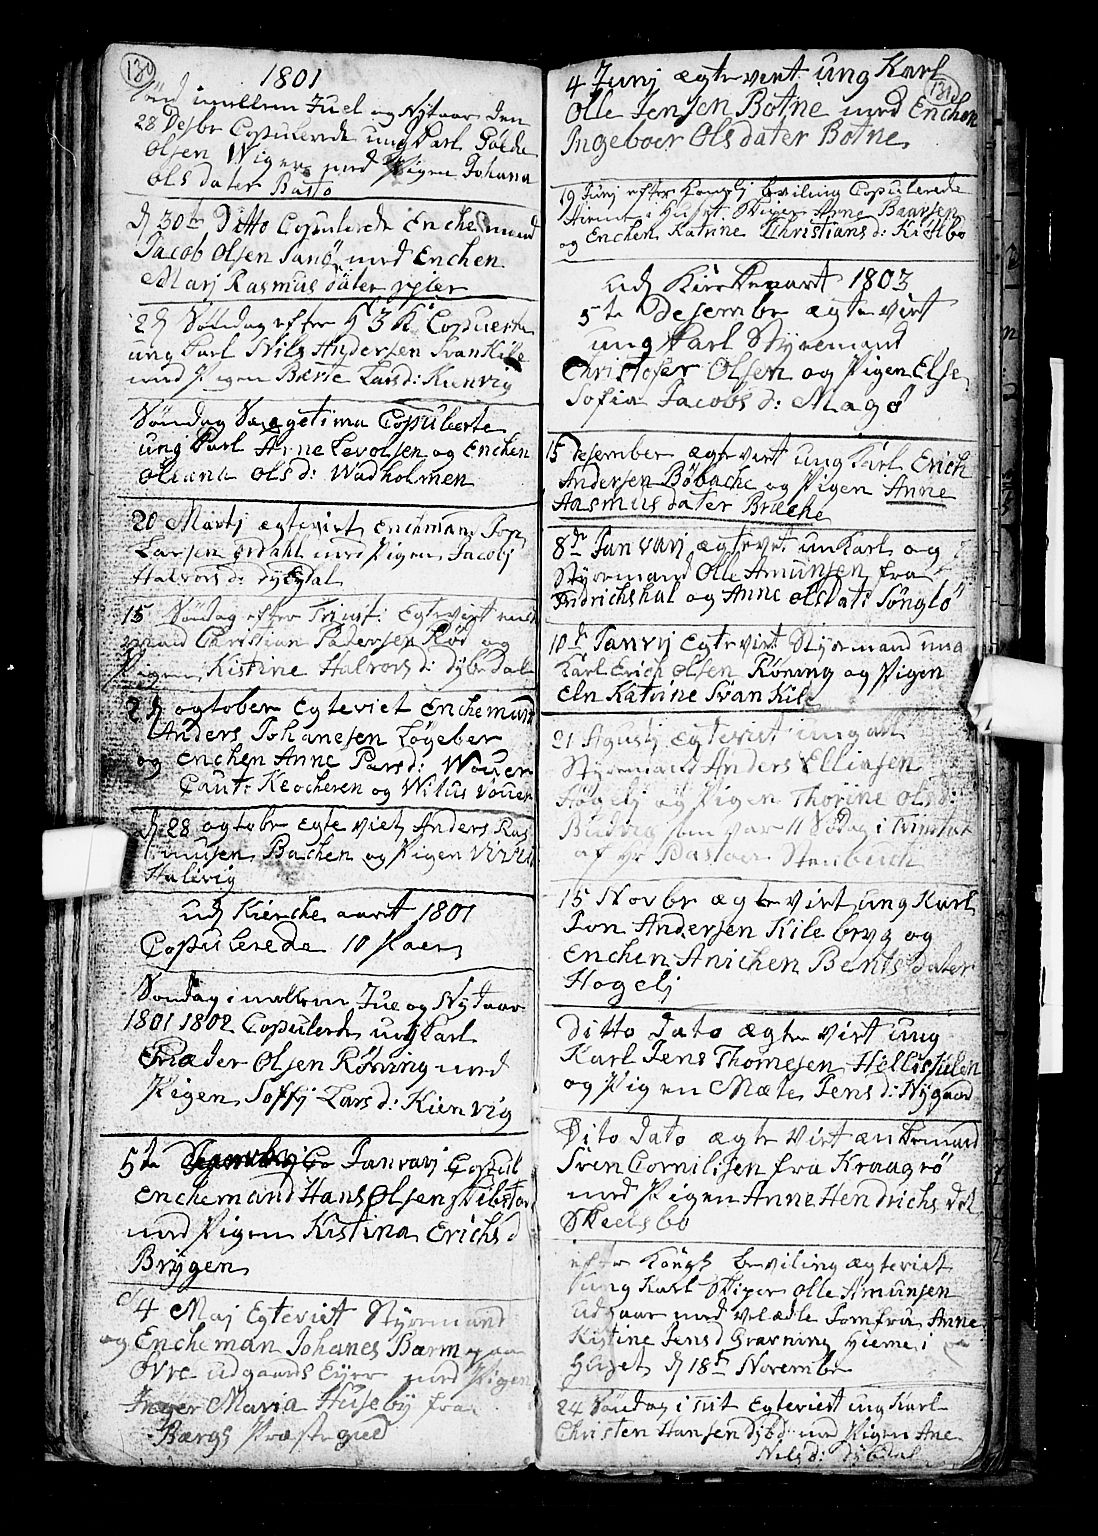 130
1801
Sønd imellem Juel og Nytaar den
28 Desbr Copulerede ung Karl
Olsen Wiger med Pigen Johana
Ols dater Bastø
d 30te Ditto Copulerede Enchemand
Jacob Olsen Sanø med Enchen
Marj Rasmus dater
2 Søndag efter H 3 K: Copulerte
ung Karl Nils Andersen Svan Kile
med Pigen Berte Lars d: Kienvig
Søndag Copulerte
ung Karl Arne Levolsen og Enchen
Oliana Ols d: Wadholmen
20 Martj egtevirt Enchman
Larsen med Pigen Jacobj
Halvors d: dybdal
15 Søndag efter Trinit: Egtevirt
mand Christian Pedersen Rød og
Pigen Kistine Halvors d: dybedal
2 d ogtober Egteviet Enchemand
Anders Johanesen Løgeber
og Enchen Anne Pers d: Wouer
Caut: Keocheren og Wilus Vouer
d 28 ogtobr Egte viet Anders Ras
musen Bachen og Pigen
Halevig
ud Kierche aaret 1801
Copulerede 10 Paer
Søndag imellem Jue og Nytaar
1801 1802 Copulerde ung Karl
Peder Olsen Røning med
Pigen Soffj Lars d: Kienvig
5te Janvarj Copul
Enchemand Hans Olsen
med Pigen Kistina Erichs d
Brygen
4 Maj Egteviet Styrmand
og Encheman Johanes Bærm paa
Øvre udgaards Eyer med Pigen
Inger Maria Huseby fra
Bærgs Præstegield
131
4 Junj ægtevirt ung Karl
Olle Jensen Botne med Enchen
Ingeboer Ols dater Botne
19 Junj efter Konglj beviling Copulerede
Hieme i Huset Skiper Arne Baarsen
og Enchen Katrine Christians d: Kitelbo
ud Kirkeaart 1803
5te Desembr ægtevirt
ung Karl Styremand
Christofer Olsen og Pigen Else
Sofia Jacobs d: Magø
15 Desember ægtevirt ung Karl Erich
Andersen Bøbache og Pigen Anne
Aasmus dater Brache
8de Janvarj ægtevet un Karl og
Styermand Olle Amunsen fra
Fredrichshal og Anne Olsdat: Sønglø
10de Janvrj Egtevirt Styrmand ung
Karl Erich Olsen Røning og Pigen
Eln Katrine Svan Kile
21 Agustj Egtevirt ung all
Styrmand Anders Ellingsen
Høgelj og Pigen Thorine Ols d:
Budvig som var 11 Sødag i Trinitat
af Hr Pastoer Stenbuch
15 Novbr ægtevirt ung Karl
Jon Andersen Kile bryg og
Enchen Anichen Bents dater
Høgelj
Ditto Dato ægtevirt ung
Karl Jens Thomesen Hellisjulen
og Pigen Mæte Jens d: Nygaard
Dito Dato ægtevirt enkemand
Sven Cornilisen fra Kraagrø
med Pigen Anne Hendrichs dat
Skeelsbo
efter Kongs beviling ægteviet
ung Karl Skiper Olle Amunsen
udgaar med velædle Jomfru Anne
Kistine Jens d Gravning Hieme i
Huset d 18de Novembr
24 Søndag i Egteviet ung Karl
Christen Hansen Djbd med Pigen Ane
Nels d: dybdal